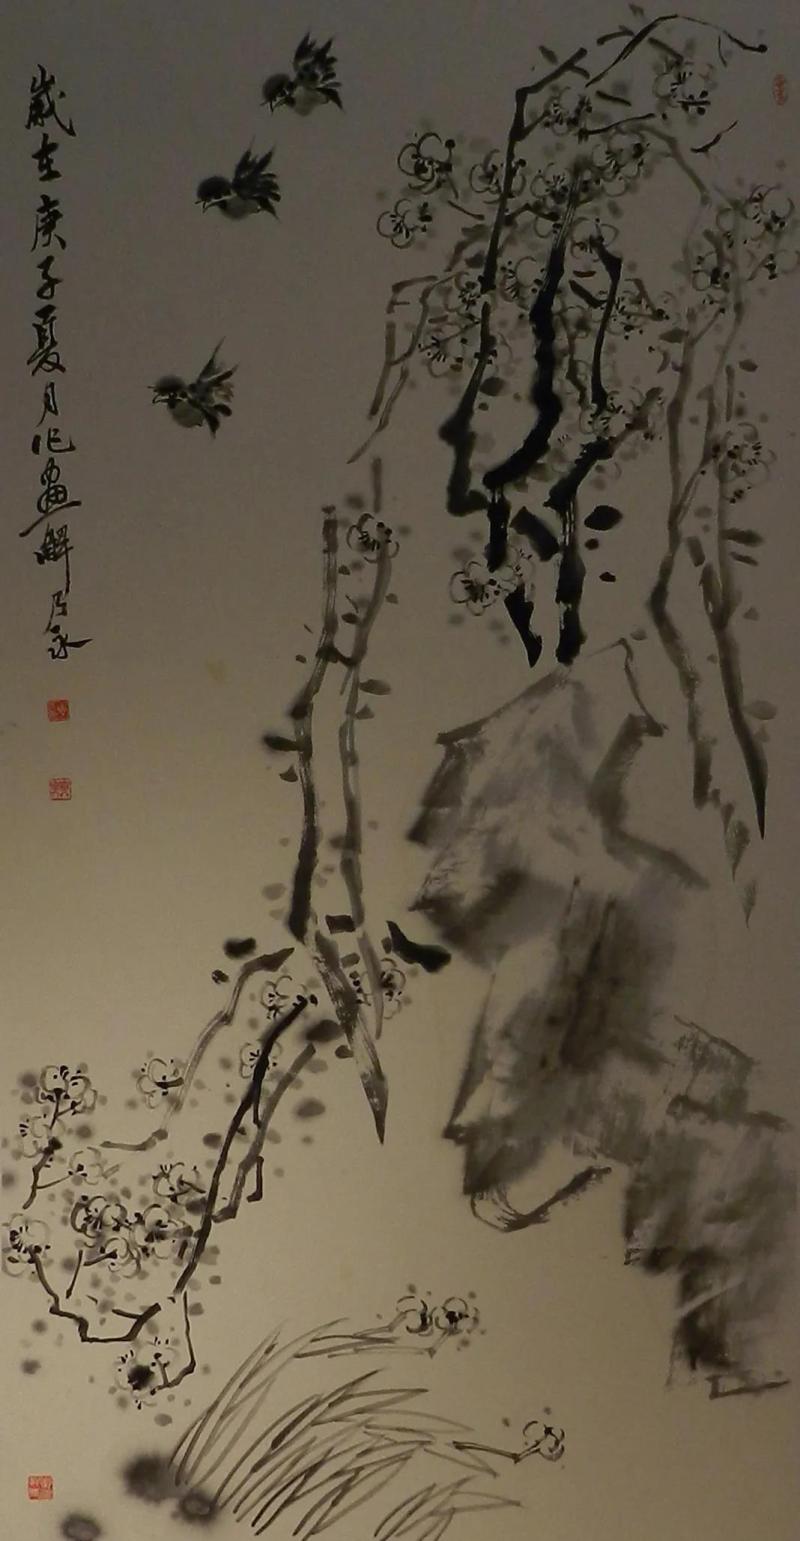 歲在庚子夏月作畫解乃永